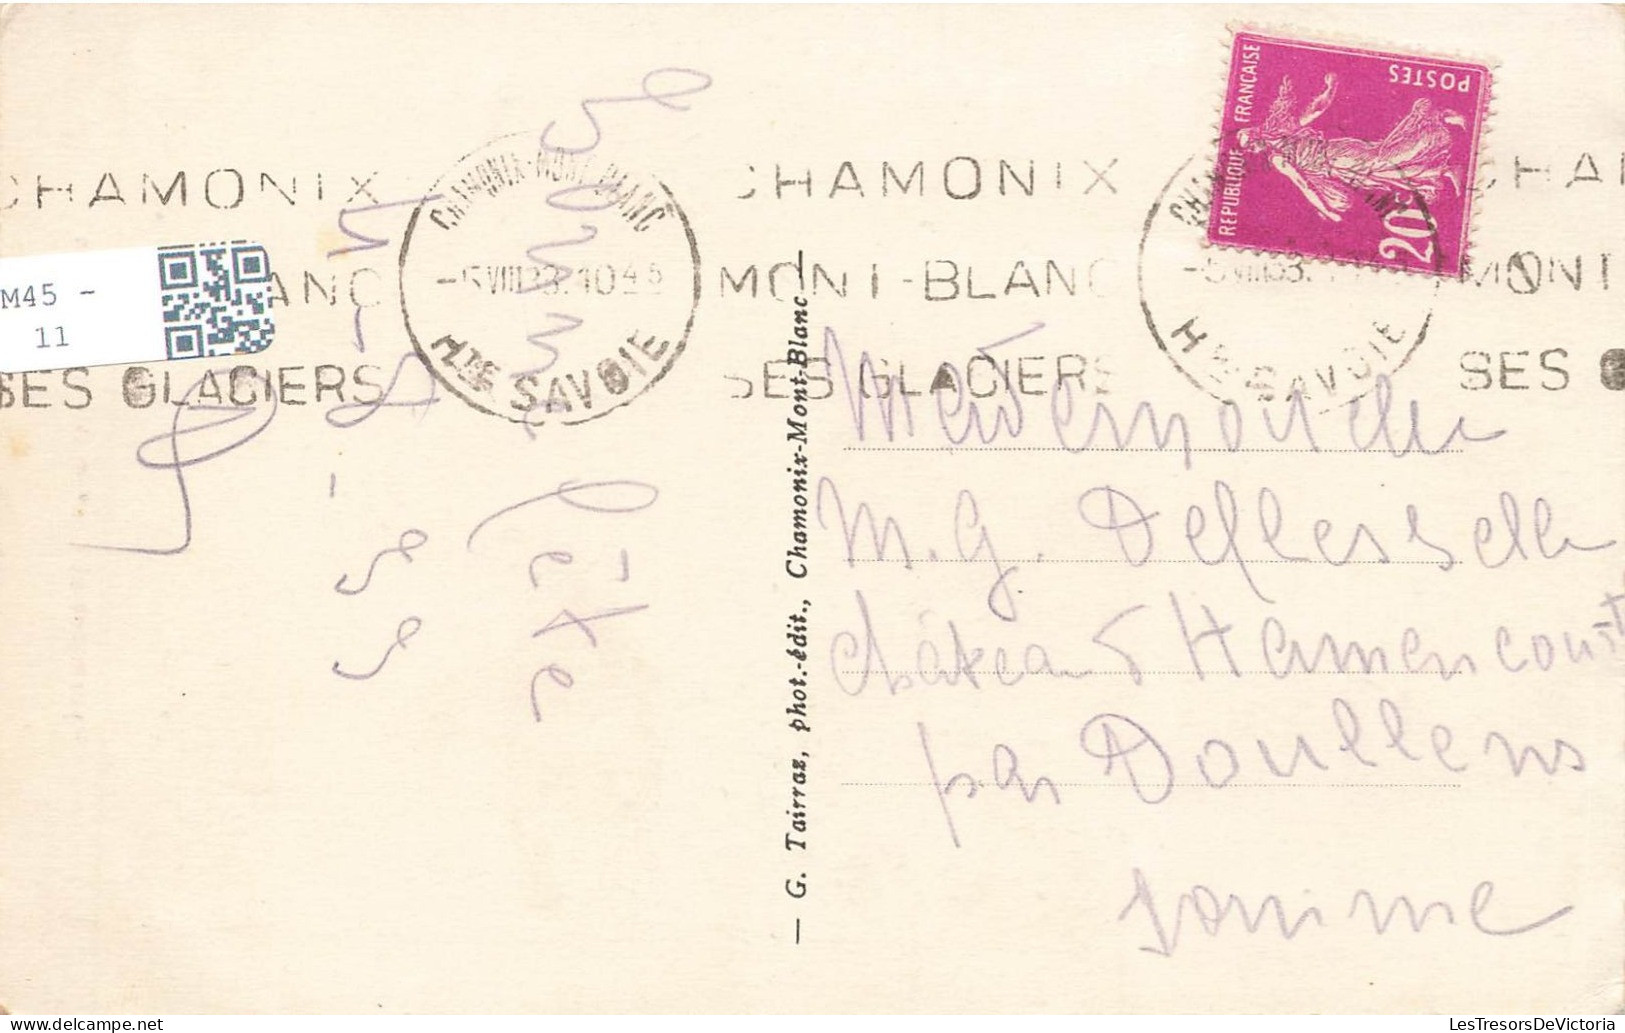 CHAMONIX
MONT-BLANC
SES GLACIERS
CHAMONIX-MONT-BLANC
-5 VIII 33. 10 45
HTE SAVOIE
CHAMONIX
MONT-BLANC
SES GLACIERS
HTE SAVOIE
CHA
MONT
SES G
M45 -
11
REPUBLIQUE FRANÇAISE
POSTES
20c
Bonne
fête
— G. Tairraz, phot.-édit., Chamonix-Mont-Blanc —
Mademoiselle
M. G. Deflesselle
château d'Hamencourt
par Doullens
Somme
LesTresorsDeVictoria